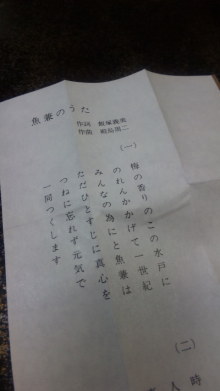 魚兼のうた
作詞 飯塚
作曲
(一)
梅の香りのこの水戸に
のれんかかげて一世紀
みんなの為にと魚兼は
ただひとすじに真心を
つねに忘れず元気で
一同つくします
(二)
時
人